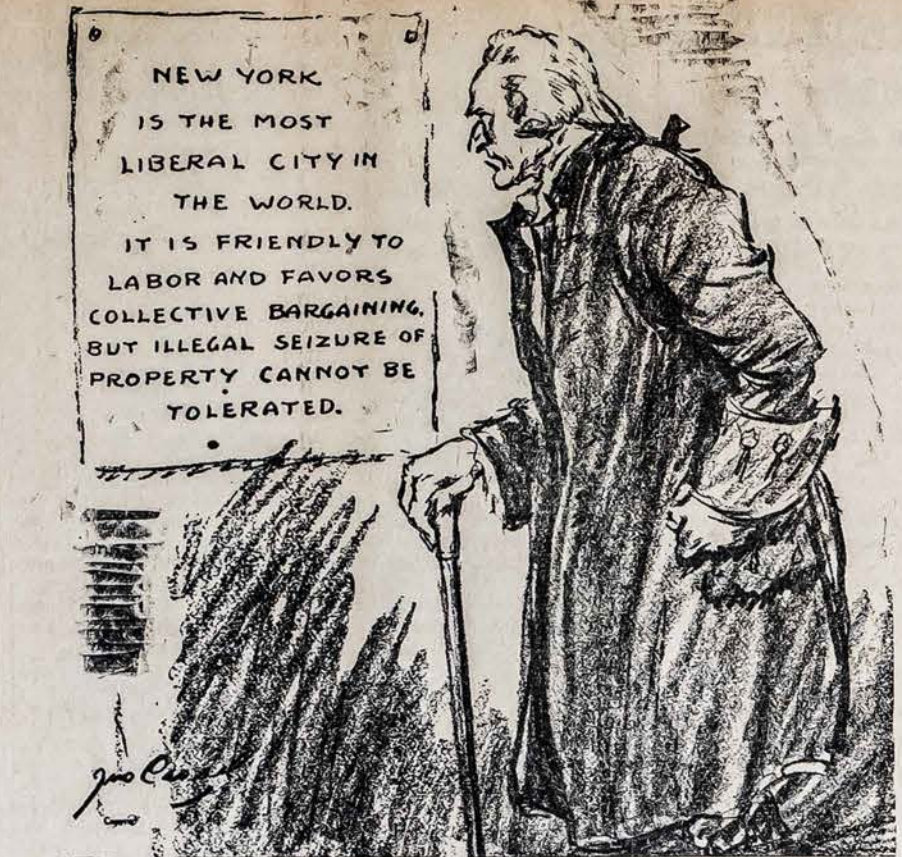 NEW YORK
IS THE MOST
LIBERAL CITY IN
THE WORLD.
IT IS FRIENDLY TO
LABOR AND FAVORS
COLLECTIVE BARGAINING.
BUT ILLEGAL SEIZURE OF
PROPERTY CANNOT BE
TOLERATED.